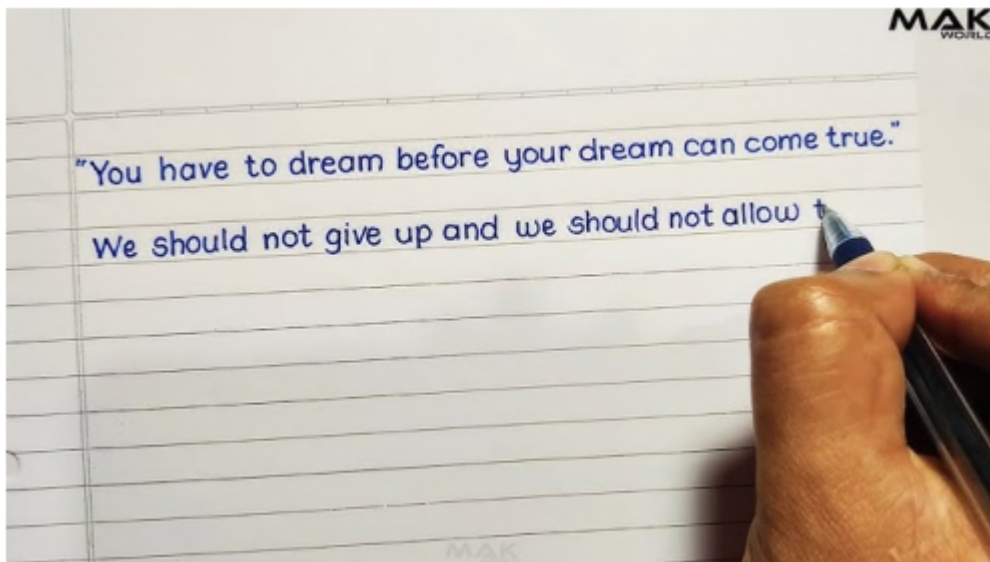 MAK
WORLD
"You have to dream before your dream can come true."
We should not give up and we should not allow t
MAK